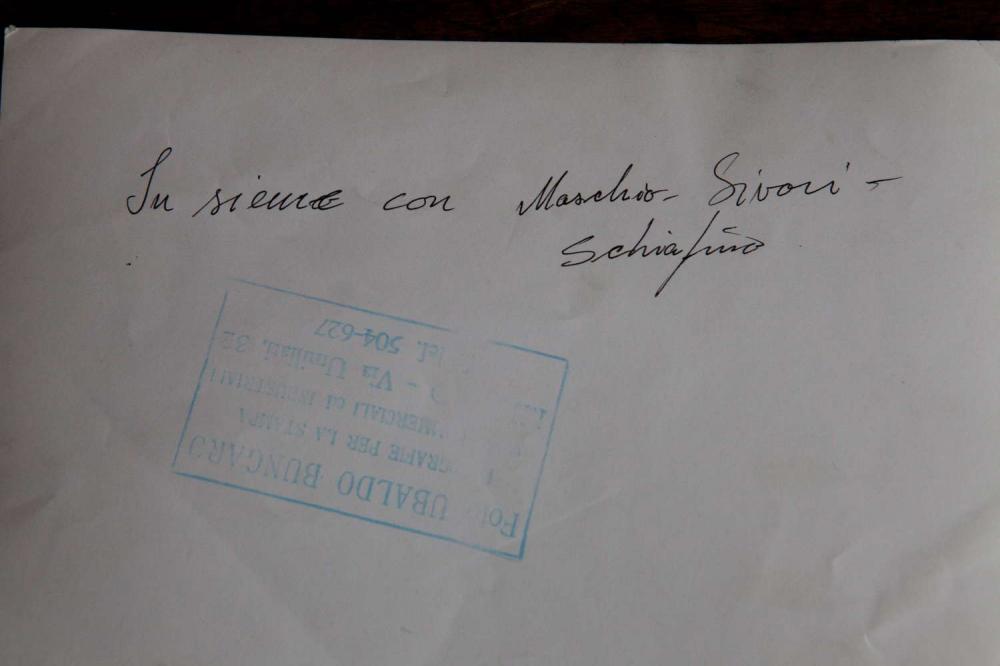 In sieme con Maschio - Sivori -
Schiafino
Foto UBALDO BUNGARO
GRAFIE PER LA STAMPA
MERCIALI ed INDUSTRIALI
- Via Umiliati, 32
Tel. 504-627